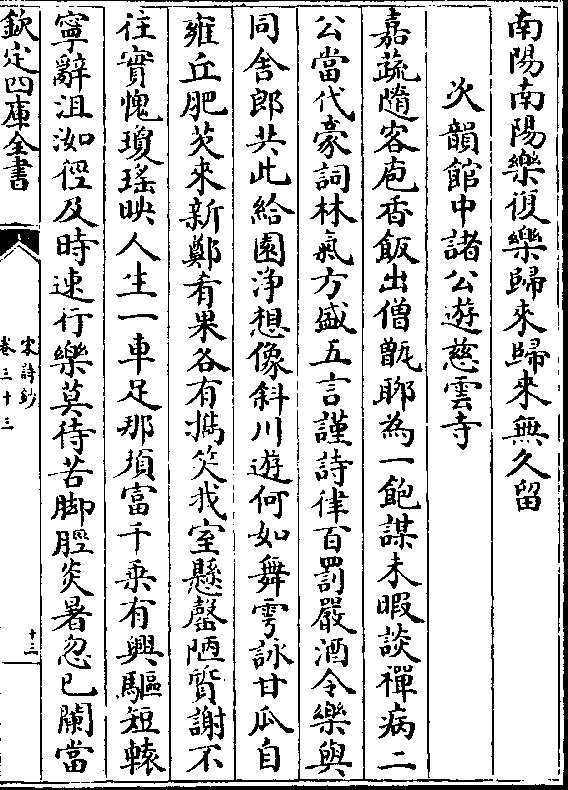 南陽南陽樂復樂歸來歸來無久留
次韻館中諸公遊慈雲寺
嘉蔬隨客庖香飯出僧甑聊為一飽謀未暇談禪病二
公當代豪詞林氣方盛五言謹詩律百罰嚴酒令樂與
同舍郎共此給園浄想像斜川遊何如舞雩詠甘瓜自
雍丘肥芡來新鄭肴果各有攜笑我室懸罄陋質謝不
往實愧瓊瑤映人生一車足那須富千乘有興驅短轅
寧辭沮洳徑及時速行樂莫待苦脚脛炎暑忽已闌當
欽定四庫全書
宋詩鈔
卷三十三
十三